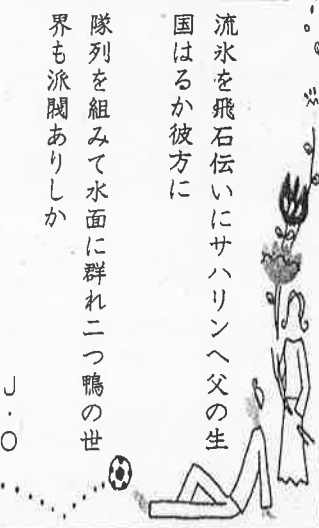 流氷を飛石伝いにサハリンへ父の生
国はるか彼方に
隊列を組みて水面に群れ二つ鴨の世
界も派閥ありしか
J・O